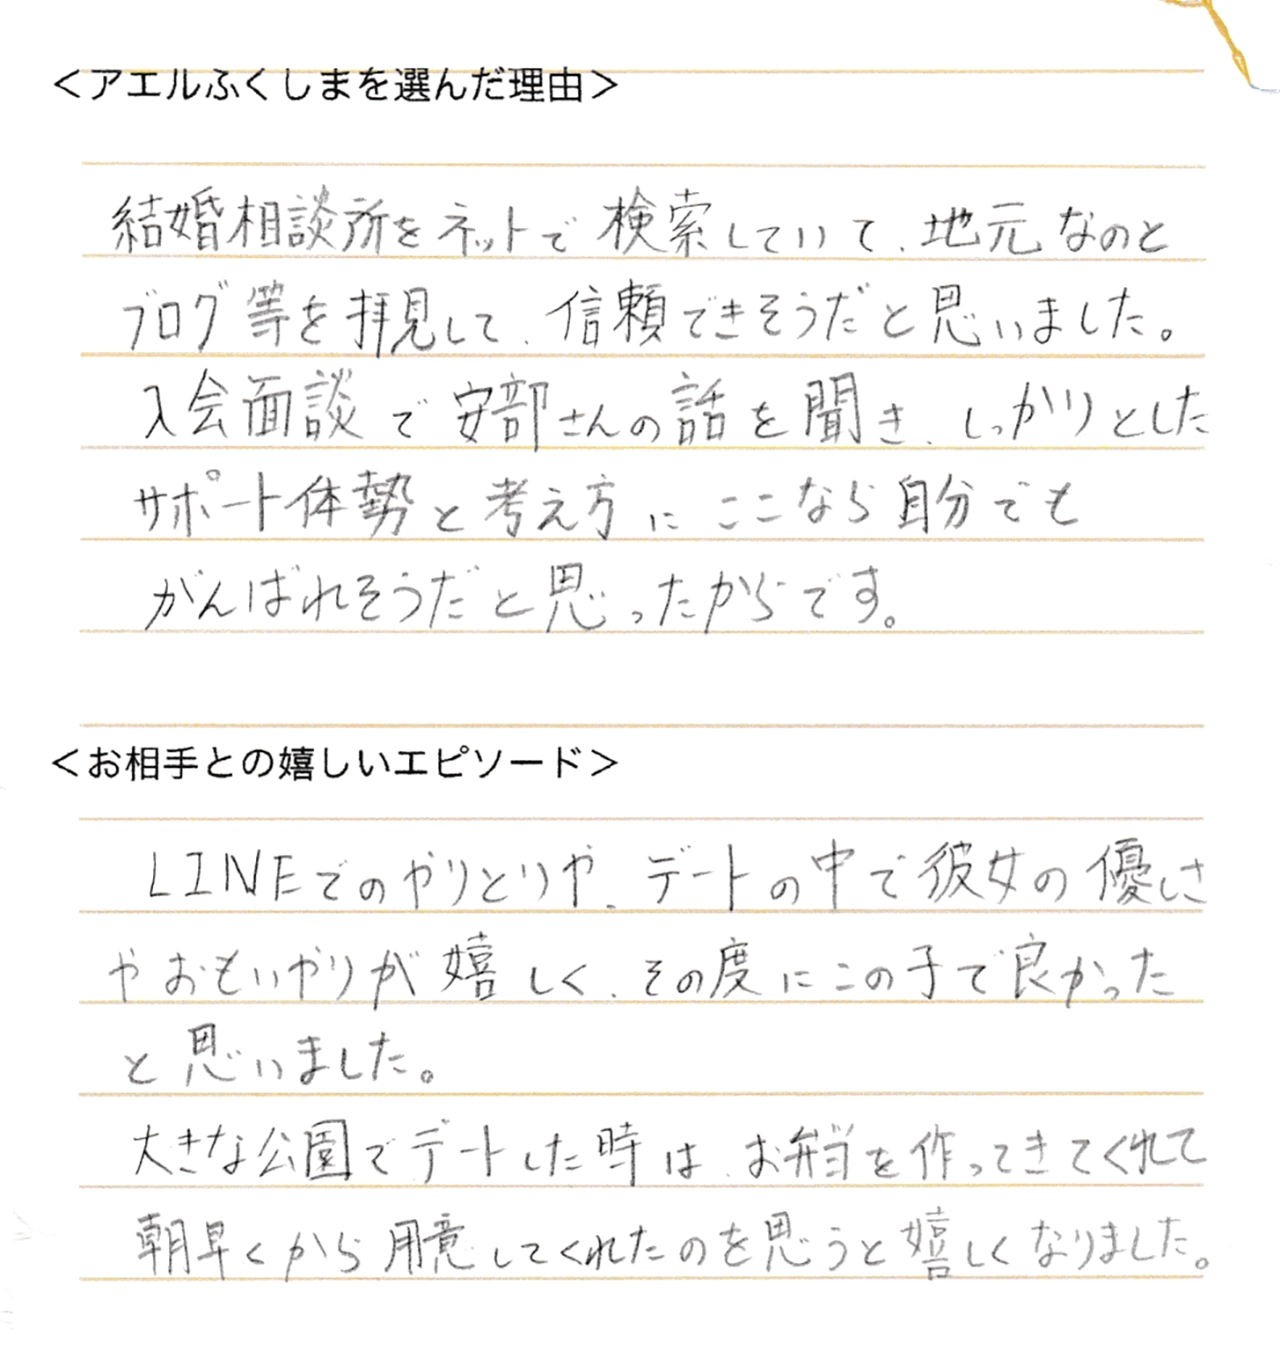 ＜アエルふくしまを選んだ理由＞
結婚相談所をネットで検索していて、地元なのと
ブログ等を拝見して、信頼できそうだと思いました。
入会面談で安部さんの話を聞き、しっかりとした
サポート体勢と考え方にここなら自分でも
がんばれそうだと思ったからです。
＜お相手との嬉しいエピソード＞
LINEでのやりとりや、デートの中で彼女の優しさ
やおもいやりが嬉しく、その度にこの子で良かった
と思いました。
大きな公園でデートした時は、お弁当を作ってきてくれて
朝早くから用意してくれたのを思うと嬉しくなりました。